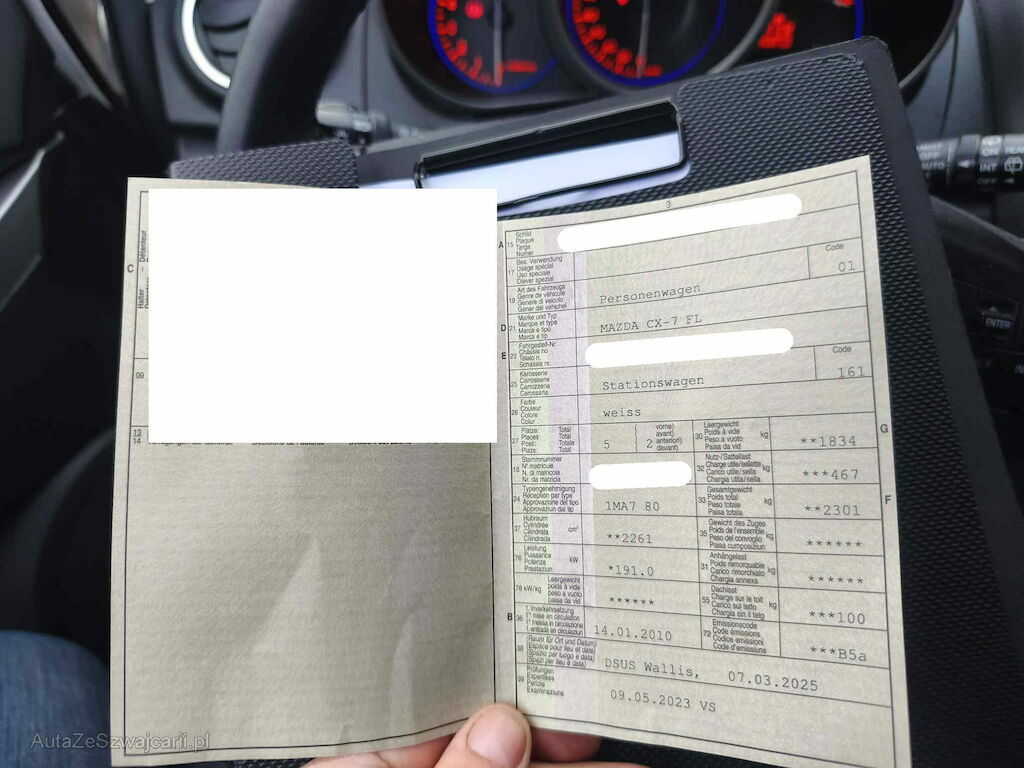 C
Halter
Détenteur
09
13
14
3
A
15
Schild
Plaque
Targa
Numer
17
Bes. Verwendung
Usage spécial
Uso speciale
Diever spezial
Code
01
19
Art des Fahrzeugs
Genre de véhicule
Genere di veicolo
Gener dal vehichel
Personenwagen
D
21
Marke und Typ
Marque et type
Marca e tipo
Marca e tip
MAZDA CX-7 FL
E
23
Fahrgestell-Nr.
Châssis no
Telaio n.
Schassis nr.
25
Karosserie
Carrosserie
Carrozzeria
Carossaria
Stationswagen
Code
161
26
Farbe
Couleur
Colore
Colur
weiss
27
Plätze: Total
Places: Total
Posti: Totale
Plazs: Total
5
2
vorne)
avant)
anteriori)
davant)
30
Leergewicht
Poids à vide
Peso a vuoto
Paisa da vid
kg
**1834
G
18
Stammnummer
N° matricule
N. di matricola
Nr. da matricla
32
Nutz-/Sattellast
Charge utile/sellette
Carico utile/sella
Chargia utila/sella
kg
***467
24
Typengenehmigung
Réception par type
Approvazione del tipo
Approvaziun dal tip
1MA7 80
33
Gesamtgewicht
Poids total
Peso totale
Paisa totala
kg
**2301
F
37
Hubraum
Cylindrée
Cilindrata
Cilindrada
cm³
**2261
35
Gewicht des Zuges
Poids de l'ensemble
Peso del convoglio
Paisa cumposiziun
kg
******
76
Leistung
Puissance
Potenza
Prestaziun
kW
*191.0
31
Anhängelast
Poids remorquable
Carico rimorchiato
Chargia annexa
kg
******
78 kW/kg
Leergewicht
poids à vide
peso a vuoto
paisa da vid
******
55
Dachlast
Charge sur le toit
Carico sul tetto
Chargia sin il tetg
kg
***100
B
36
1. Inverkehrsetzung
1re mise en circulation
1a messa in circolazione
1. entrada en circulaziun
14.01.2010
72
Emissionscode
Code émissions
Codice emissioni
Code d'emissiuns
***B5a
38
(Raum für Ort und Datum)
(Espace pour lieu et date)
(Spazio per luogo e data)
(Spazi per lieu e data)
DSUS Wallis, 07.03.2025
39
Prüfungen
Expertises
Perizie
Examinaziuns
09.05.2023 VS
AUTO
INT
ON
OFF
ENTER
AutaZeSzwajcarii.pl